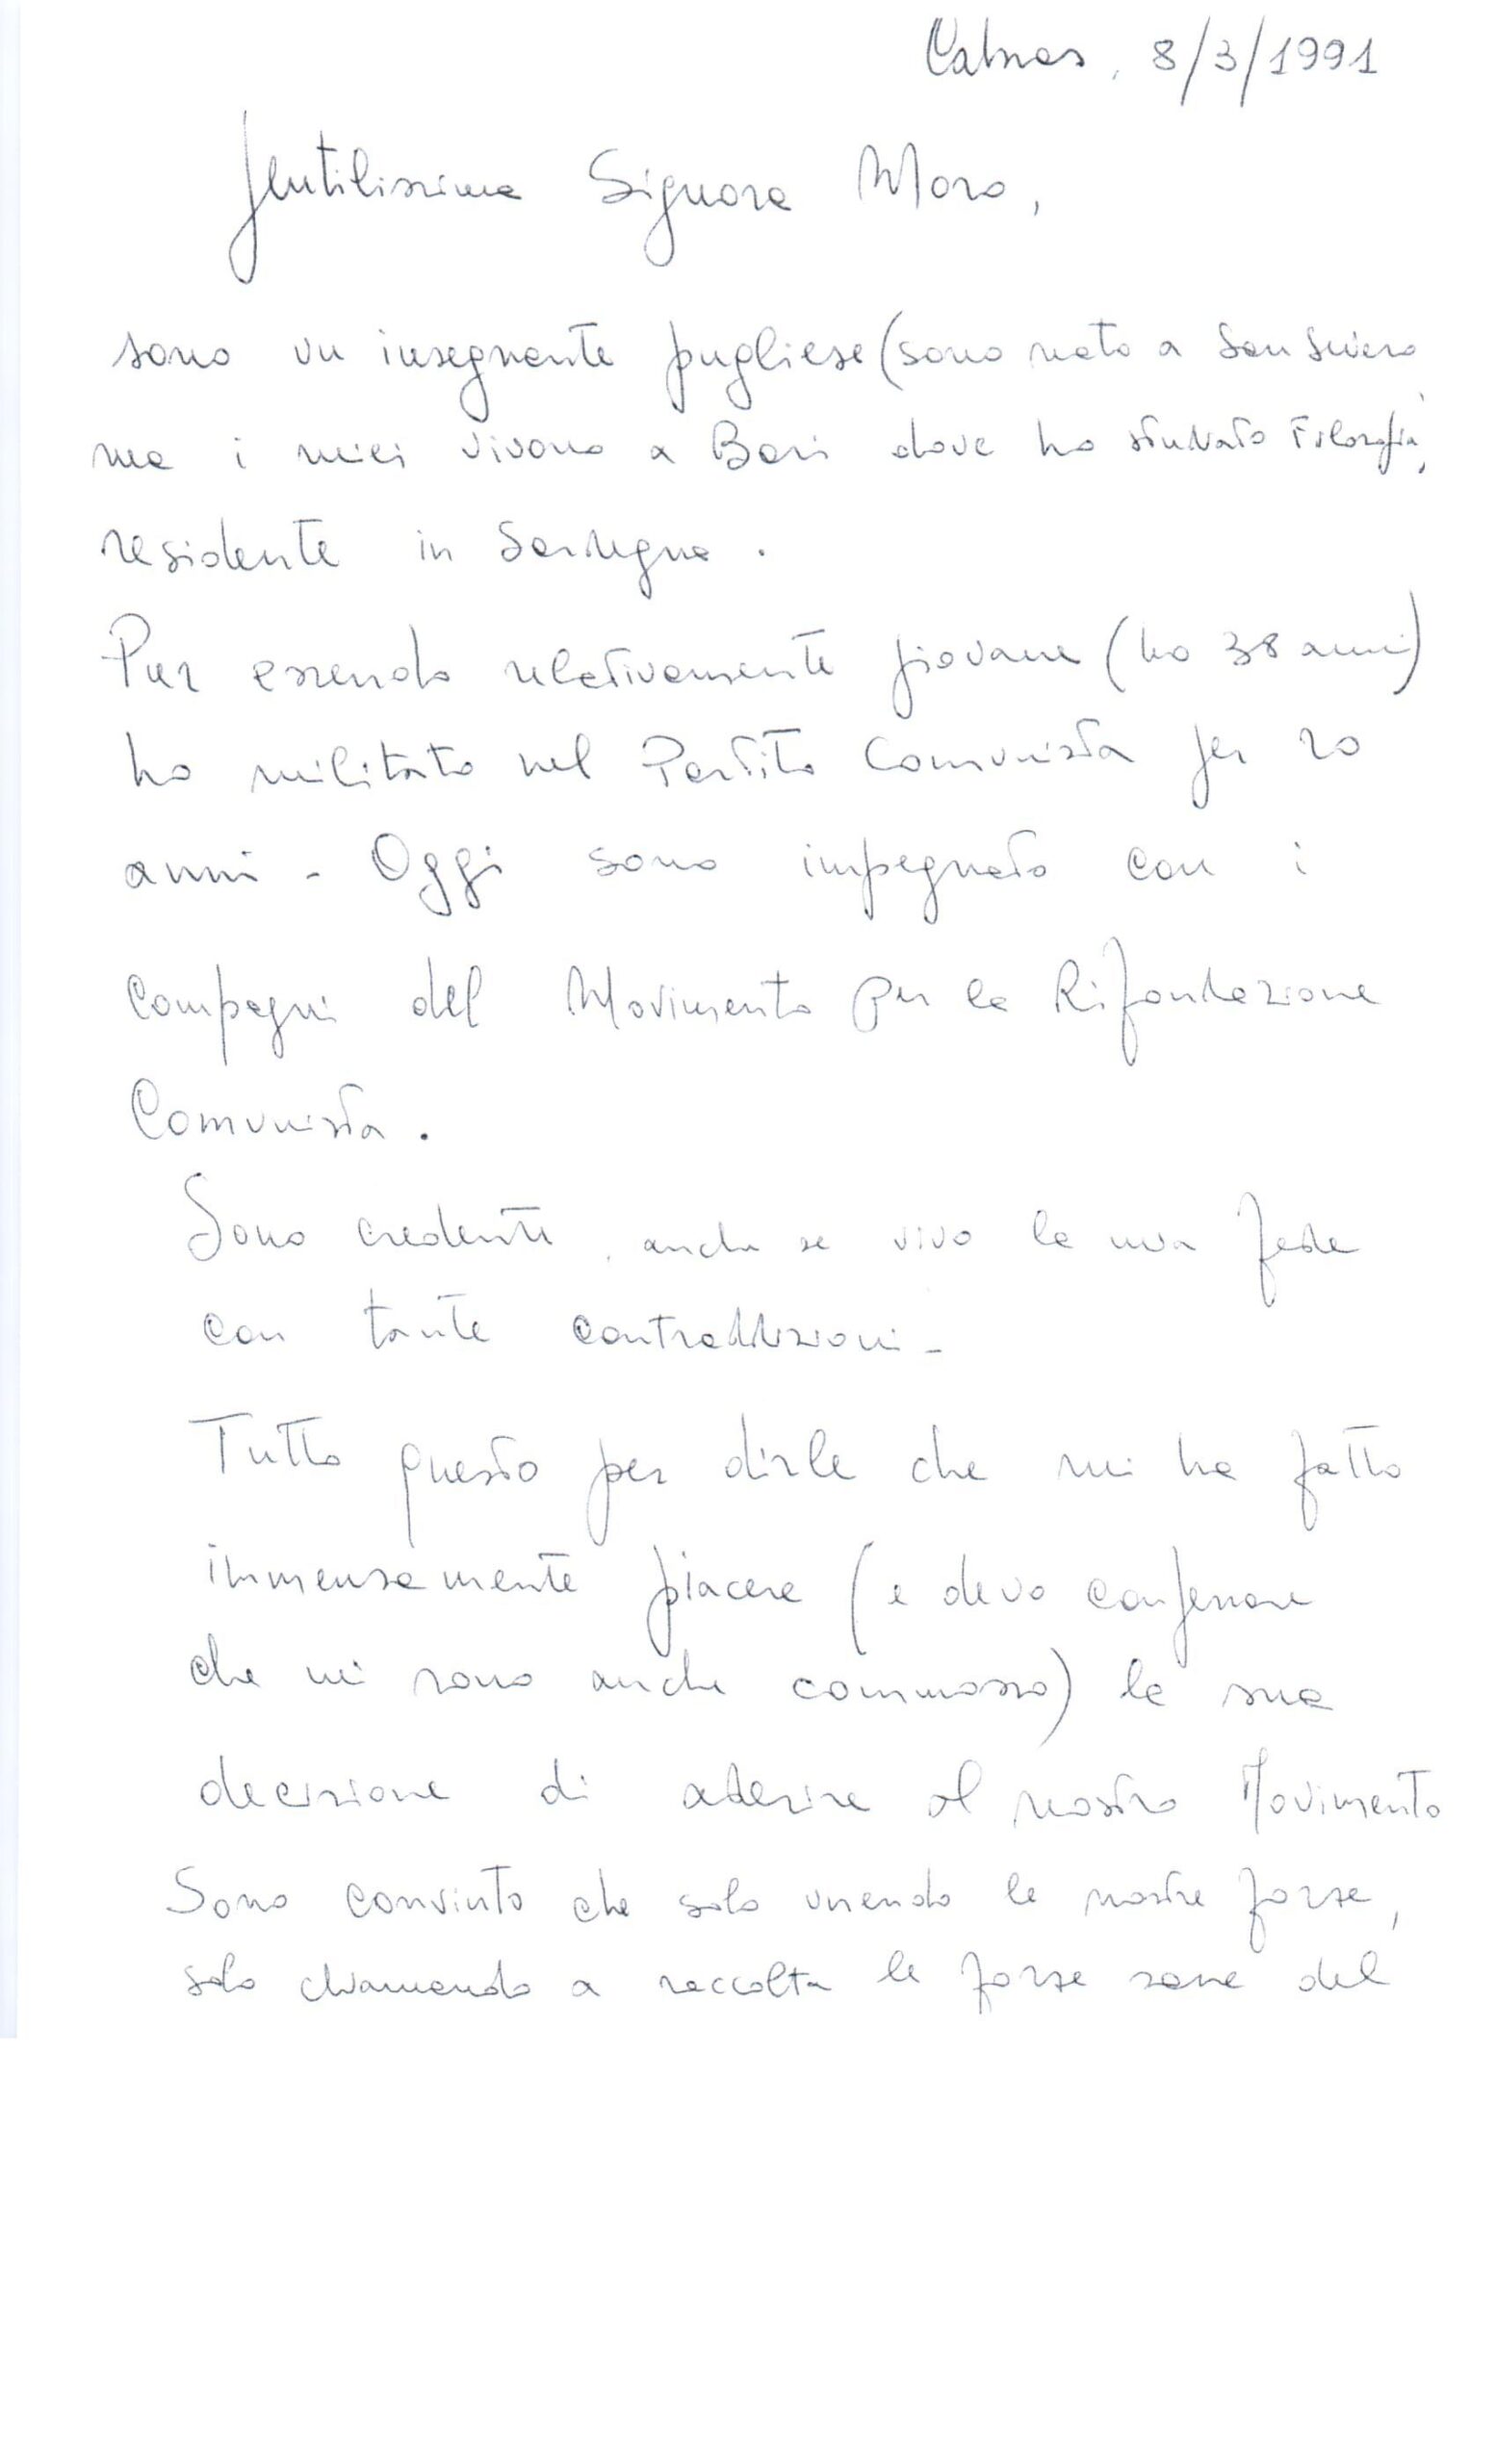 Cabras, 8/3/1991
Gentilissima Signora Moro,
sono un insegnante pugliese (sono nato a San Severo
ma i miei vivono a Bari dove ho studiato Filosofia,
residente in Sardegna.
Pur essendo relativamente giovane (ho 38 anni)
ho militato nel Partito Comunista per 20
anni - Oggi sono impegnato con i
compagni del Movimento per la Rifondazione
Comunista.
Sono credente, anche se vivo la mia fede
con tante contraddizioni -
Tutto questo per dirle che mi ha fatto
immensamente piacere (e devo confessare
che mi sono anche commosso) la sua
decisione di aderire al nostro Movimento
Sono convinto che solo unendo le nostre forze,
solo chiamando a raccolta le forze sane del